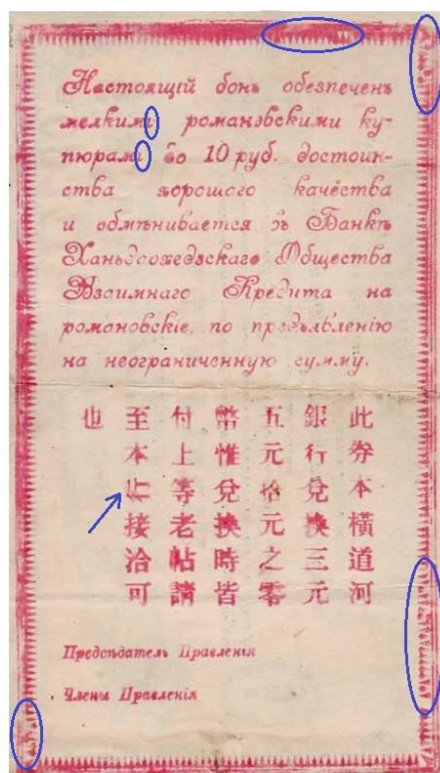 Настоящій бонъ обезпеченъ
мелкими романовскими ку-
пюрами до 10 руб. достоин-
ства хорошого качества
и обмѣнивается въ Банкѣ
Ханьдаохедзскаго Общества
Взаимнаго Кредита на
романовскіе, по предъявленію
на неограниченную сумму.
此券本橫道河
銀行兌換三元
五元拾元之零
幣惟兌換時皆
付上等老帖請
至本接洽可
也
Предсѣдатель Правленія
Члены Правленія